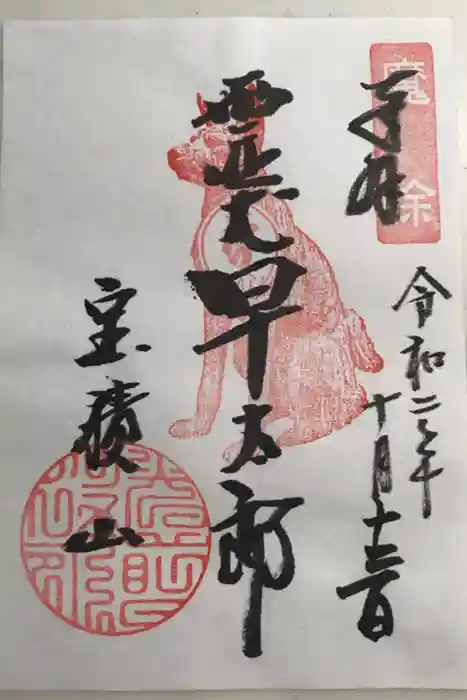 奉拝
魔除
令和二年
十月十三日
霊犬早太郎
宝積山